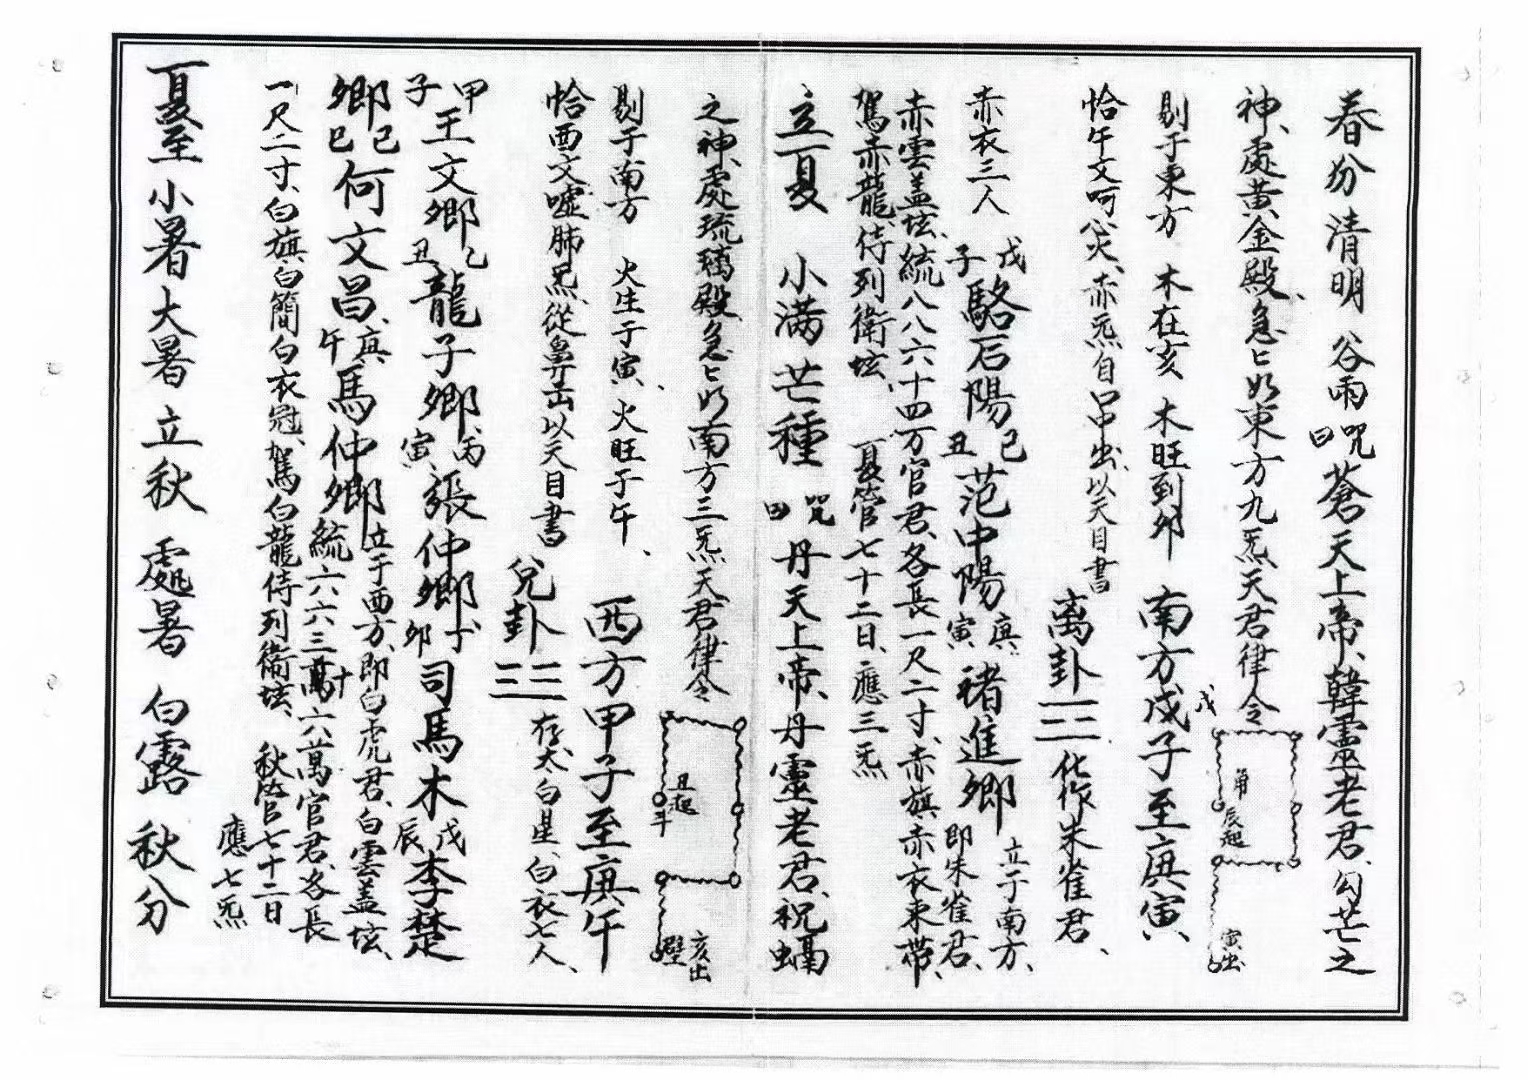 春分 清明 谷雨 咒曰 蒼天上帝、韓靈老君、勾芒之
神、處黃金殿、急匕如東方九炁天君律令
角 辰起 寅出
剔于東方 木在亥 木旺到卯 南方戊子至庚寅、
戊
恰午文呵炎、赤炁自口中出、以天目書 离卦☲化作朱雀君、
赤衣三人 戊子 駱石陽 己丑 范中陽 庚寅 褚進卿 立于南方、即朱雀君、
赤雲盖坛、統八八六十四万官君、各長一尺二寸、赤旗赤衣束帶、
駕赤龍、侍列衛坛、 夏管七十二日、應三炁
立夏 小满 芒種 咒曰 丹天上帝、丹靈老君、祝螎
之神、處琉璃殿急匕如南方三炁天君律令
丑起 斗 亥出 壁
剔于南方 火生于寅、火旺于午、 西方甲子至庚午
恰酉文嘘肺炁、從鼻出以天目書 兌卦☱ 存太白星、白衣七人、
甲子 王文卿 乙丑 龍子卿 丙寅 張仲卿 丁卯 司馬木 戊辰 李楚
卿 己巳 何文昌、庚午 馬仲卿 立于西方、即白虎君、白雲盖坛、
統六六三十萬六萬官君、各長
一尺二寸、白旗白簡白衣冠、駕白龍侍列衛坛、 秋管七十二日
應七炁
夏至 小暑 大暑 立秋 處暑 白露 秋分